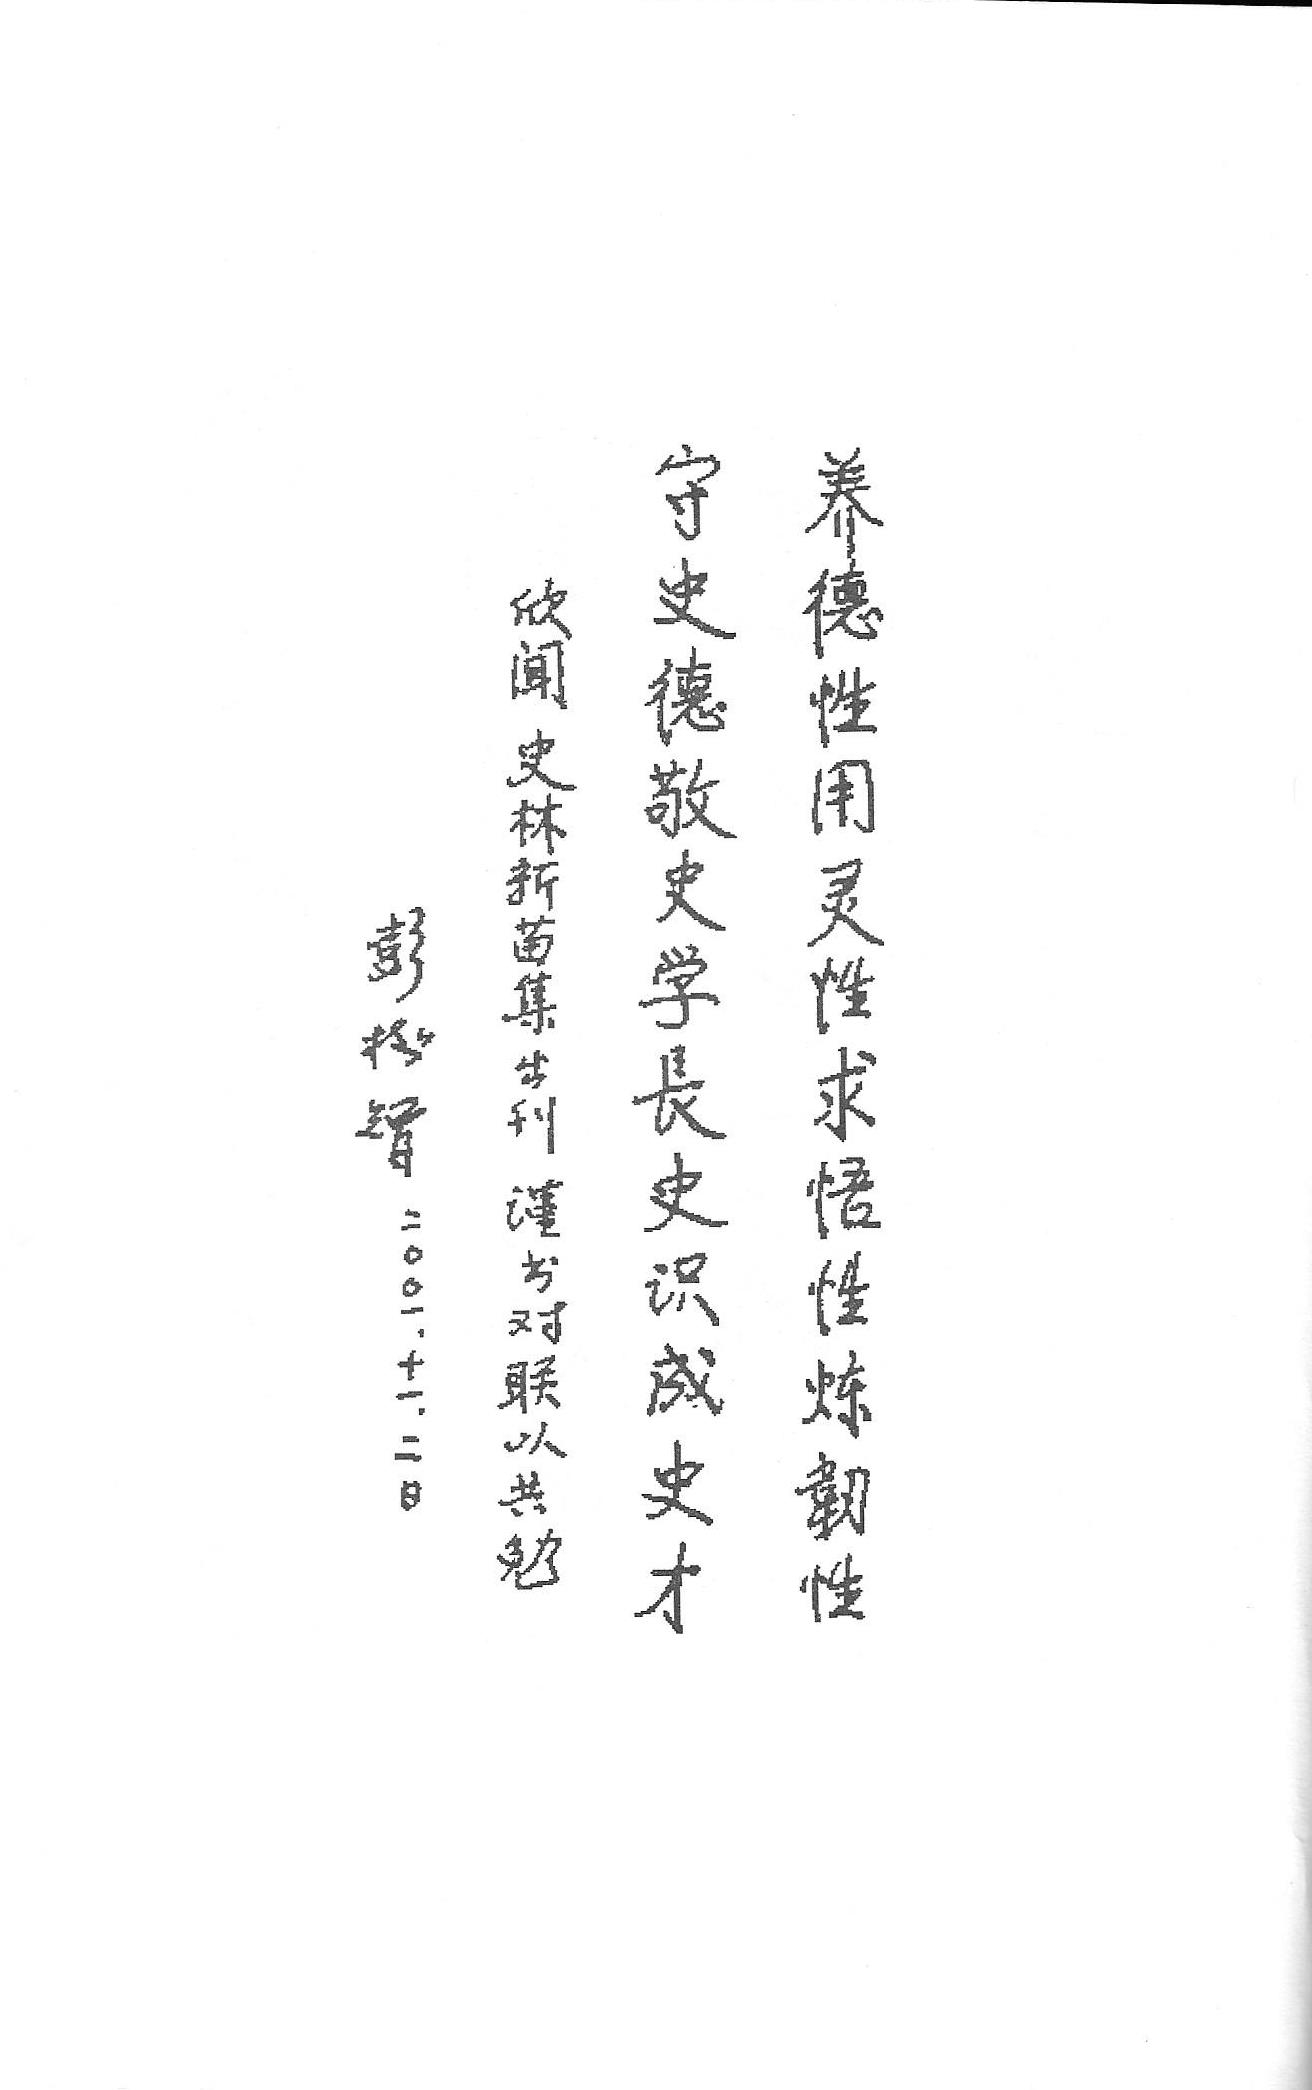 养德性用灵性求悟性炼韧性
守史德敬史学長史识成史才
欣闻 史林新苗集出刊 谨书对联以共勉
彭 智 二〇〇一.十一.二日